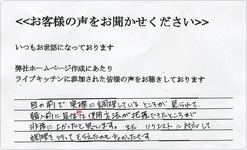 <<お客様の声をお聞かせください>>
いつもお世話になっております
弊社ホームページ作成にあたり
ライブキッチンに参加された皆様の声をお聴きしております
目の前で実際に調理しているところが見られて、
購入前に具体的な使用方法が把握できたところが
非常によかったと思います。又 リクエストに対応して
調理を行ってもらえたのもよかったです